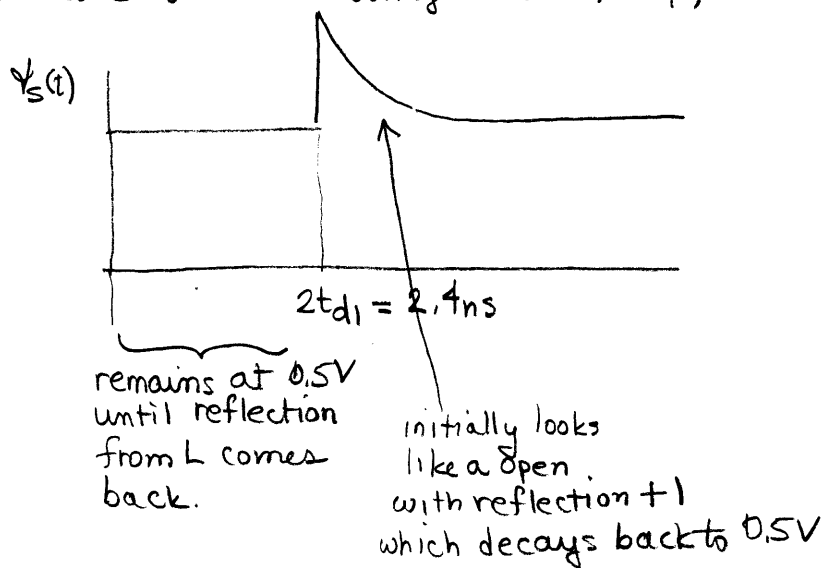 𝒱s(t)
2td1 = 2.4ns
remains at 0.5V
until reflection
from L comes
back.
initially looks
like a open
with reflection +1
which decays back to 0.5V